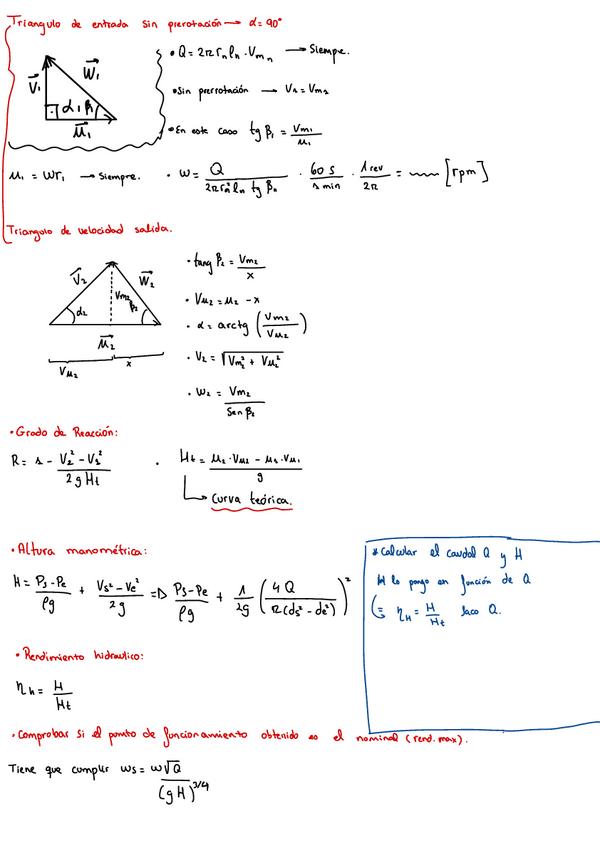 Triangulo de entrada sin prerotación → α = 90°
V₁ W₁ α₁ β₁ U₁
• Q = 2π r_n l_n · V_m_n → Siempre.
• Sin prerrotación → V₁ = V_m₁
• En este caso tg β₁ = V_m₁ / u₁
u₁ = ωr₁ → Siempre.
• ω = Q / (2π r_n² l_n tg β_n) · 60 s / 1 min · 1 rev / 2π = [rpm]
Triangulo de velocidad salida.
V₂ W₂ V_m₂ α₂ β₂ U₂
V_u₂ x
• tang β₂ = V_m₂ / x
• V_u₂ = u₂ - x
• α = arctg (V_m₂ / V_u₂)
• V₂ = √(V_m₂² + V_u₂²)
• W₂ = V_m₂ / Sen β₂
• Grado de Reacción:
R = 1 - (V₂² - V₁²) / (2 g Ht) • Ht = (u₂ · V_u₂ - u₁ · V_u₁) / g
Curva teórica.
• Altura manométrica:
H = (Ps - Pe) / ρg + (Vs² - Ve²) / 2g ⇒ (Ps - Pe) / ρg + 1 / 2g (4 Q / π (ds² - de²))²
* Calcular el caudal Q y H
H lo pongo en función de Q
η_H = H / Ht saco Q.
• Rendimiento hidraulico:
η_h = H / Ht
• Comprobar si el punto de funcionamiento obtenido es el nominal (rend. max).
Tiene que cumplir ωs = ω√Q / (g H)^3/4